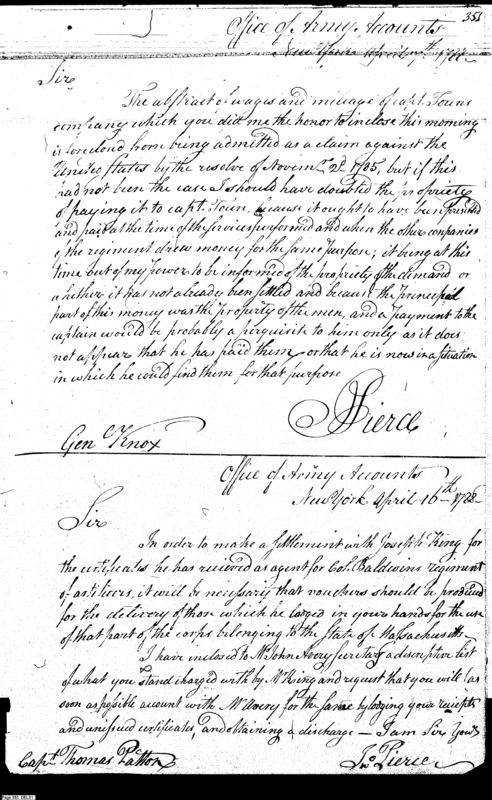 351
Office of Army Accounts
New York April 1788
Sir
The abstract of wages and mileage of capt. Towns
company which you did me the honor to inclose this morning
is foreclosed from being admitted as a claim against the
United States by the resolve of Novemr. 2d. 1785, but if this
had not been the case I should have doubted the propriety
of paying it to capt. Town, because it ought to have been presented
and paid at the time of the services performed and when the other companies
of the regiment drew money for the same purpose; it being at this
time out of my power to be informed of the propriety of the demand or
whether it has not already been settled and because the principal
part of this money was the property of the men, and a payment to the
captain would be probably a perquisite to him only as it does
not appear that he has paid them or that he is now in a situation
in which he could find them for that purpose
J Pierce
Gen Knox
Office of Army Accounts
New York April 16th 1788
Sir
In order to make a settlement with Joseph King for
the certificates he has recieved as agent for Col. Baldwins regiment
of artificers, it will be necessary that vouchers should be produced
for the delivery of those which he lodged in your hands for the use
of that part of the corps belonging to the State of Massachusetts
I have inclosed to Mr John Avery Secretary a descriptive list
of what you stand charged with by Mr King and request that you will as
soon as possible account with Mr Avery for the same by lodging your reciepts
and unissued certificates, and obtaining a discharge — I am Sir Yours
Capt. Thomas Patton
Jno Pierce